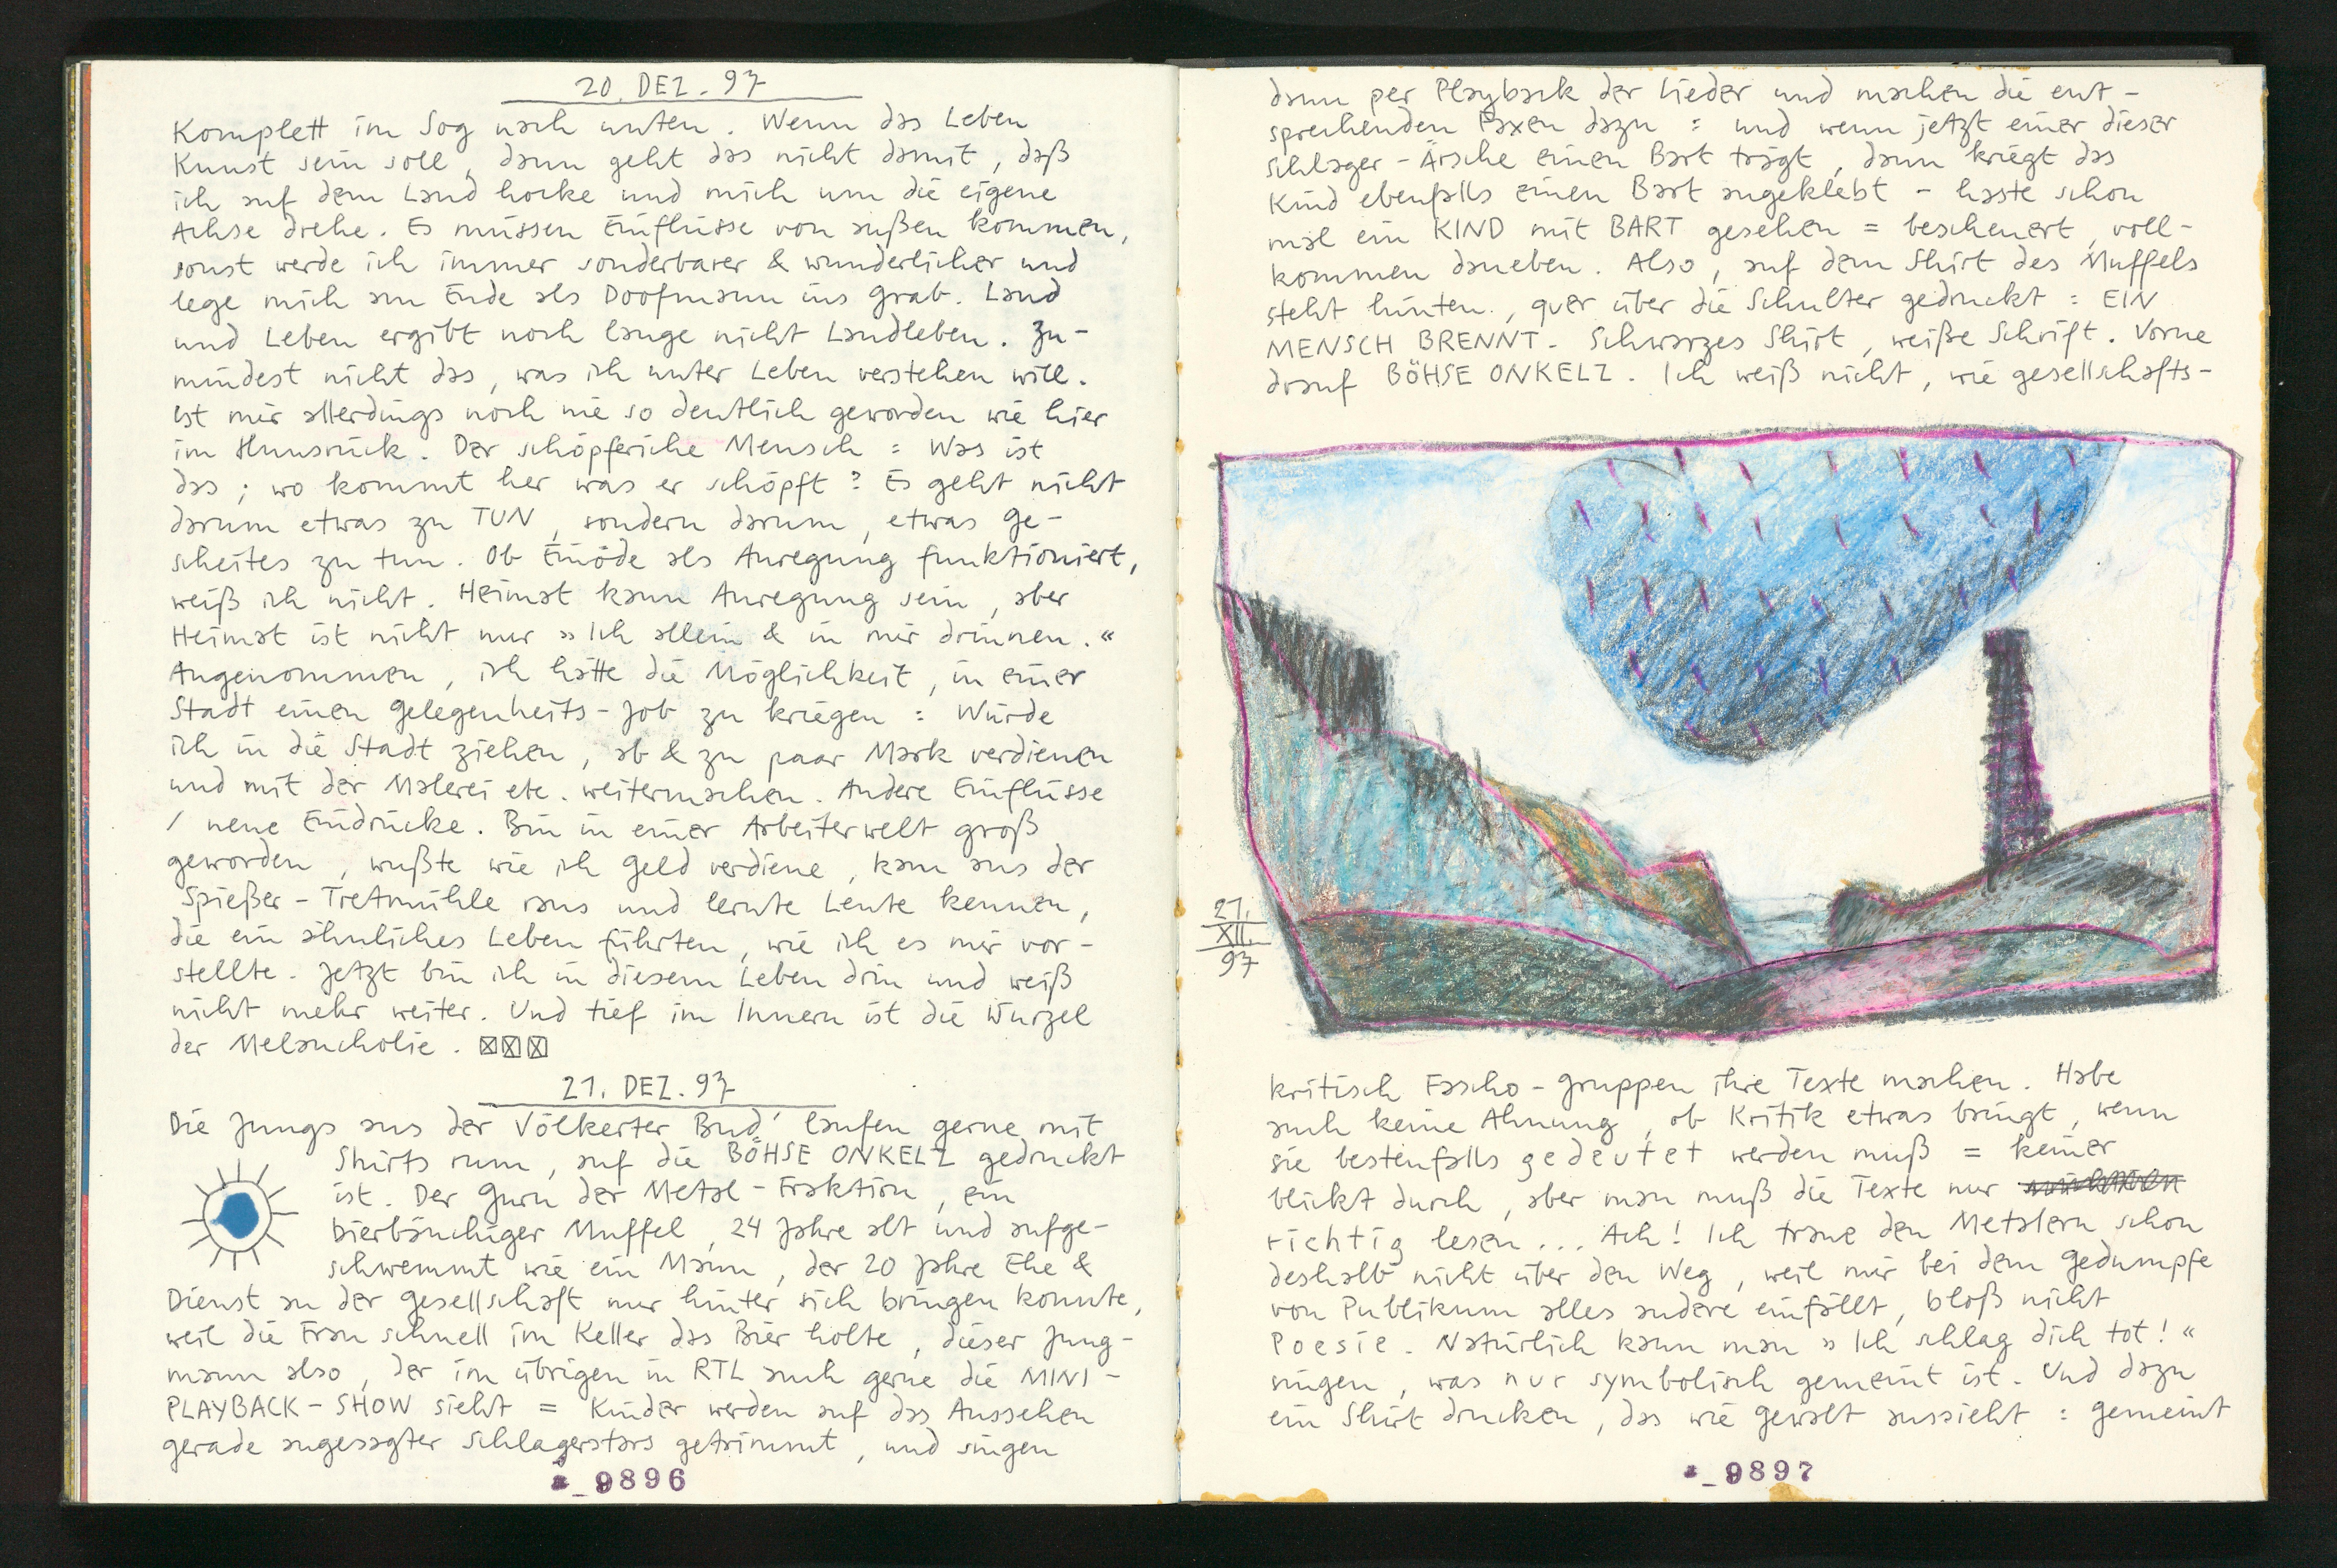 20. DEZ. 97
Komplett im Sog nach unten. Wenn das Leben
Kunst sein soll, dann geht das nicht damit, daß
ich auf dem Land hocke und mich um die eigene
Achse drehe. Es müssen Einflüsse von außen kommen,
sonst werde ich immer sonderbarer & wunderlicher und
lege mich am Ende als Doofmann ins Grab. Land
und Leben ergibt noch lange nicht Landleben. Zu-
mindest nicht das, was ich unter Leben verstehen will.
Ist mir allerdings noch nie so deutlich geworden wie hier
im Hunsrück. Der schöpferiche Mensch : Was ist
das ; wo kommt her was er schöpft ? Es geht nicht
darum etwas zu TUN, sondern darum, etwas ge-
scheites zu tun. Ob Einöde als Anregung funktioniert,
weiß ich nicht. Heimat kann Anregung sein, aber
Heimat ist nicht nur »Ich allein & in mir drinnen.«
Angenommen, ich hätte die Möglichkeit, in einer
Stadt einen Gelegenheits-Job zu kriegen : Würde
ich in die Stadt ziehen, ab & zu paar Mark verdienen
und mit der Malerei etc. weitermachen. Andere Einflüsse
/ neue Eindrücke. Bin in einer Arbeiterwelt groß
geworden, wußte wie ich Geld verdiene, kam aus der
Spießer-Tretmühle raus und lernte Leute kennen,
die ein ähnliches Leben führten, wie ich es mir vor-
stellte. Jetzt bin ich in diesem Leben drin und weiß
nicht mehr weiter. Und tief im Innern ist die Wurzel
der Melancholie. ☒☒☒
21. DEZ. 97
Die Jungs aus der Völkerter Bud' laufen gerne mit
Shirts rum, auf die BÖHSE ONKELZ gedruckt
ist. Der Guru der Metal-Fraktion, ein
bierbäuchiger Muffel, 24 Jahre alt und aufge-
schwemmt wie ein Mann, der 20 Jahre Ehe &
Dienst an der Gesellschaft nur hinter sich bringen konnte,
weil die Frau schnell im Keller das Bier holte, dieser Jung-
mann also, der im übrigen in RTL auch gerne die MINI-
PLAYBACK-SHOW sieht = Kinder werden auf das Aussehen
gerade angesagter Schlagerstars getrimmt, und singen
9896
dann per Playback der Lieder und machen die ent-
sprechenden Faxen dazu : und wenn jetzt einer dieser
Schlager-Ärsche einen Bart trägt, dann kriegt das
Kind ebenfalls einen Bart angeklebt - haste schon
mal ein KIND mit BART gesehen = bescheuert, voll-
kommen daneben. Also, auf dem Shirt des Muffels
steht hinten, quer über die Schulter gedruckt : EIN
MENSCH BRENNT. Schwarzes Shirt, weiße Schrift. Vorne
drauf BÖHSE ONKELZ. Ich weiß nicht, wie gesellschafts-
21.
XII.
97
kritisch Fascho-Gruppen ihre Texte machen. Habe
auch keine Ahnung, ob Kritik etwas bringt, wenn
sie bestenfalls gedeutet werden muß = keiner
blickt durch, aber man muß die Texte nur
richtig lesen... Ach! Ich traue den Metalern schon
deshalb nicht über den Weg, weil mir bei dem Gedumpfe
von Publikum alles andere einfällt, bloß nicht
Poesie. Natürlich kann man »Ich schlag dich tot!«
singen, was nur symbolisch gemeint ist. Und dazu
ein Shirt drucken, das wie Gewalt aussieht : gemeint
9897